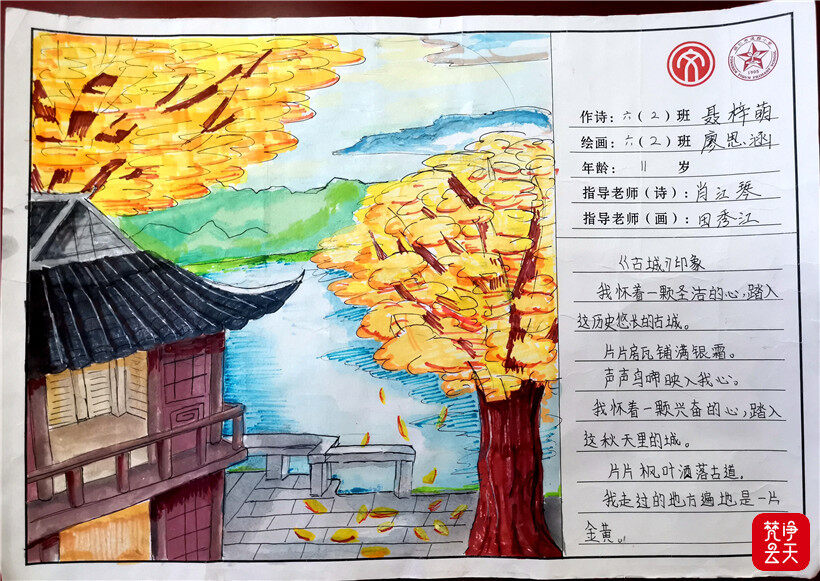 作诗：六（2）班 聂梓萌
绘画：六（2）班 廖思涵
年龄： 11 岁
指导老师（诗）：肖江琴
指导老师（画）：田秀江
《古城》印象
我怀着一颗圣洁的心，踏入
这历史悠长的古城。
片片房瓦铺满银霜。
声声鸟啼映入我心。
我怀着一颗兴奋的心，踏入
这秋天里的城。
片片枫叶洒落古道。
我走过的地方遍地是一片
金黄。
梵净
云天